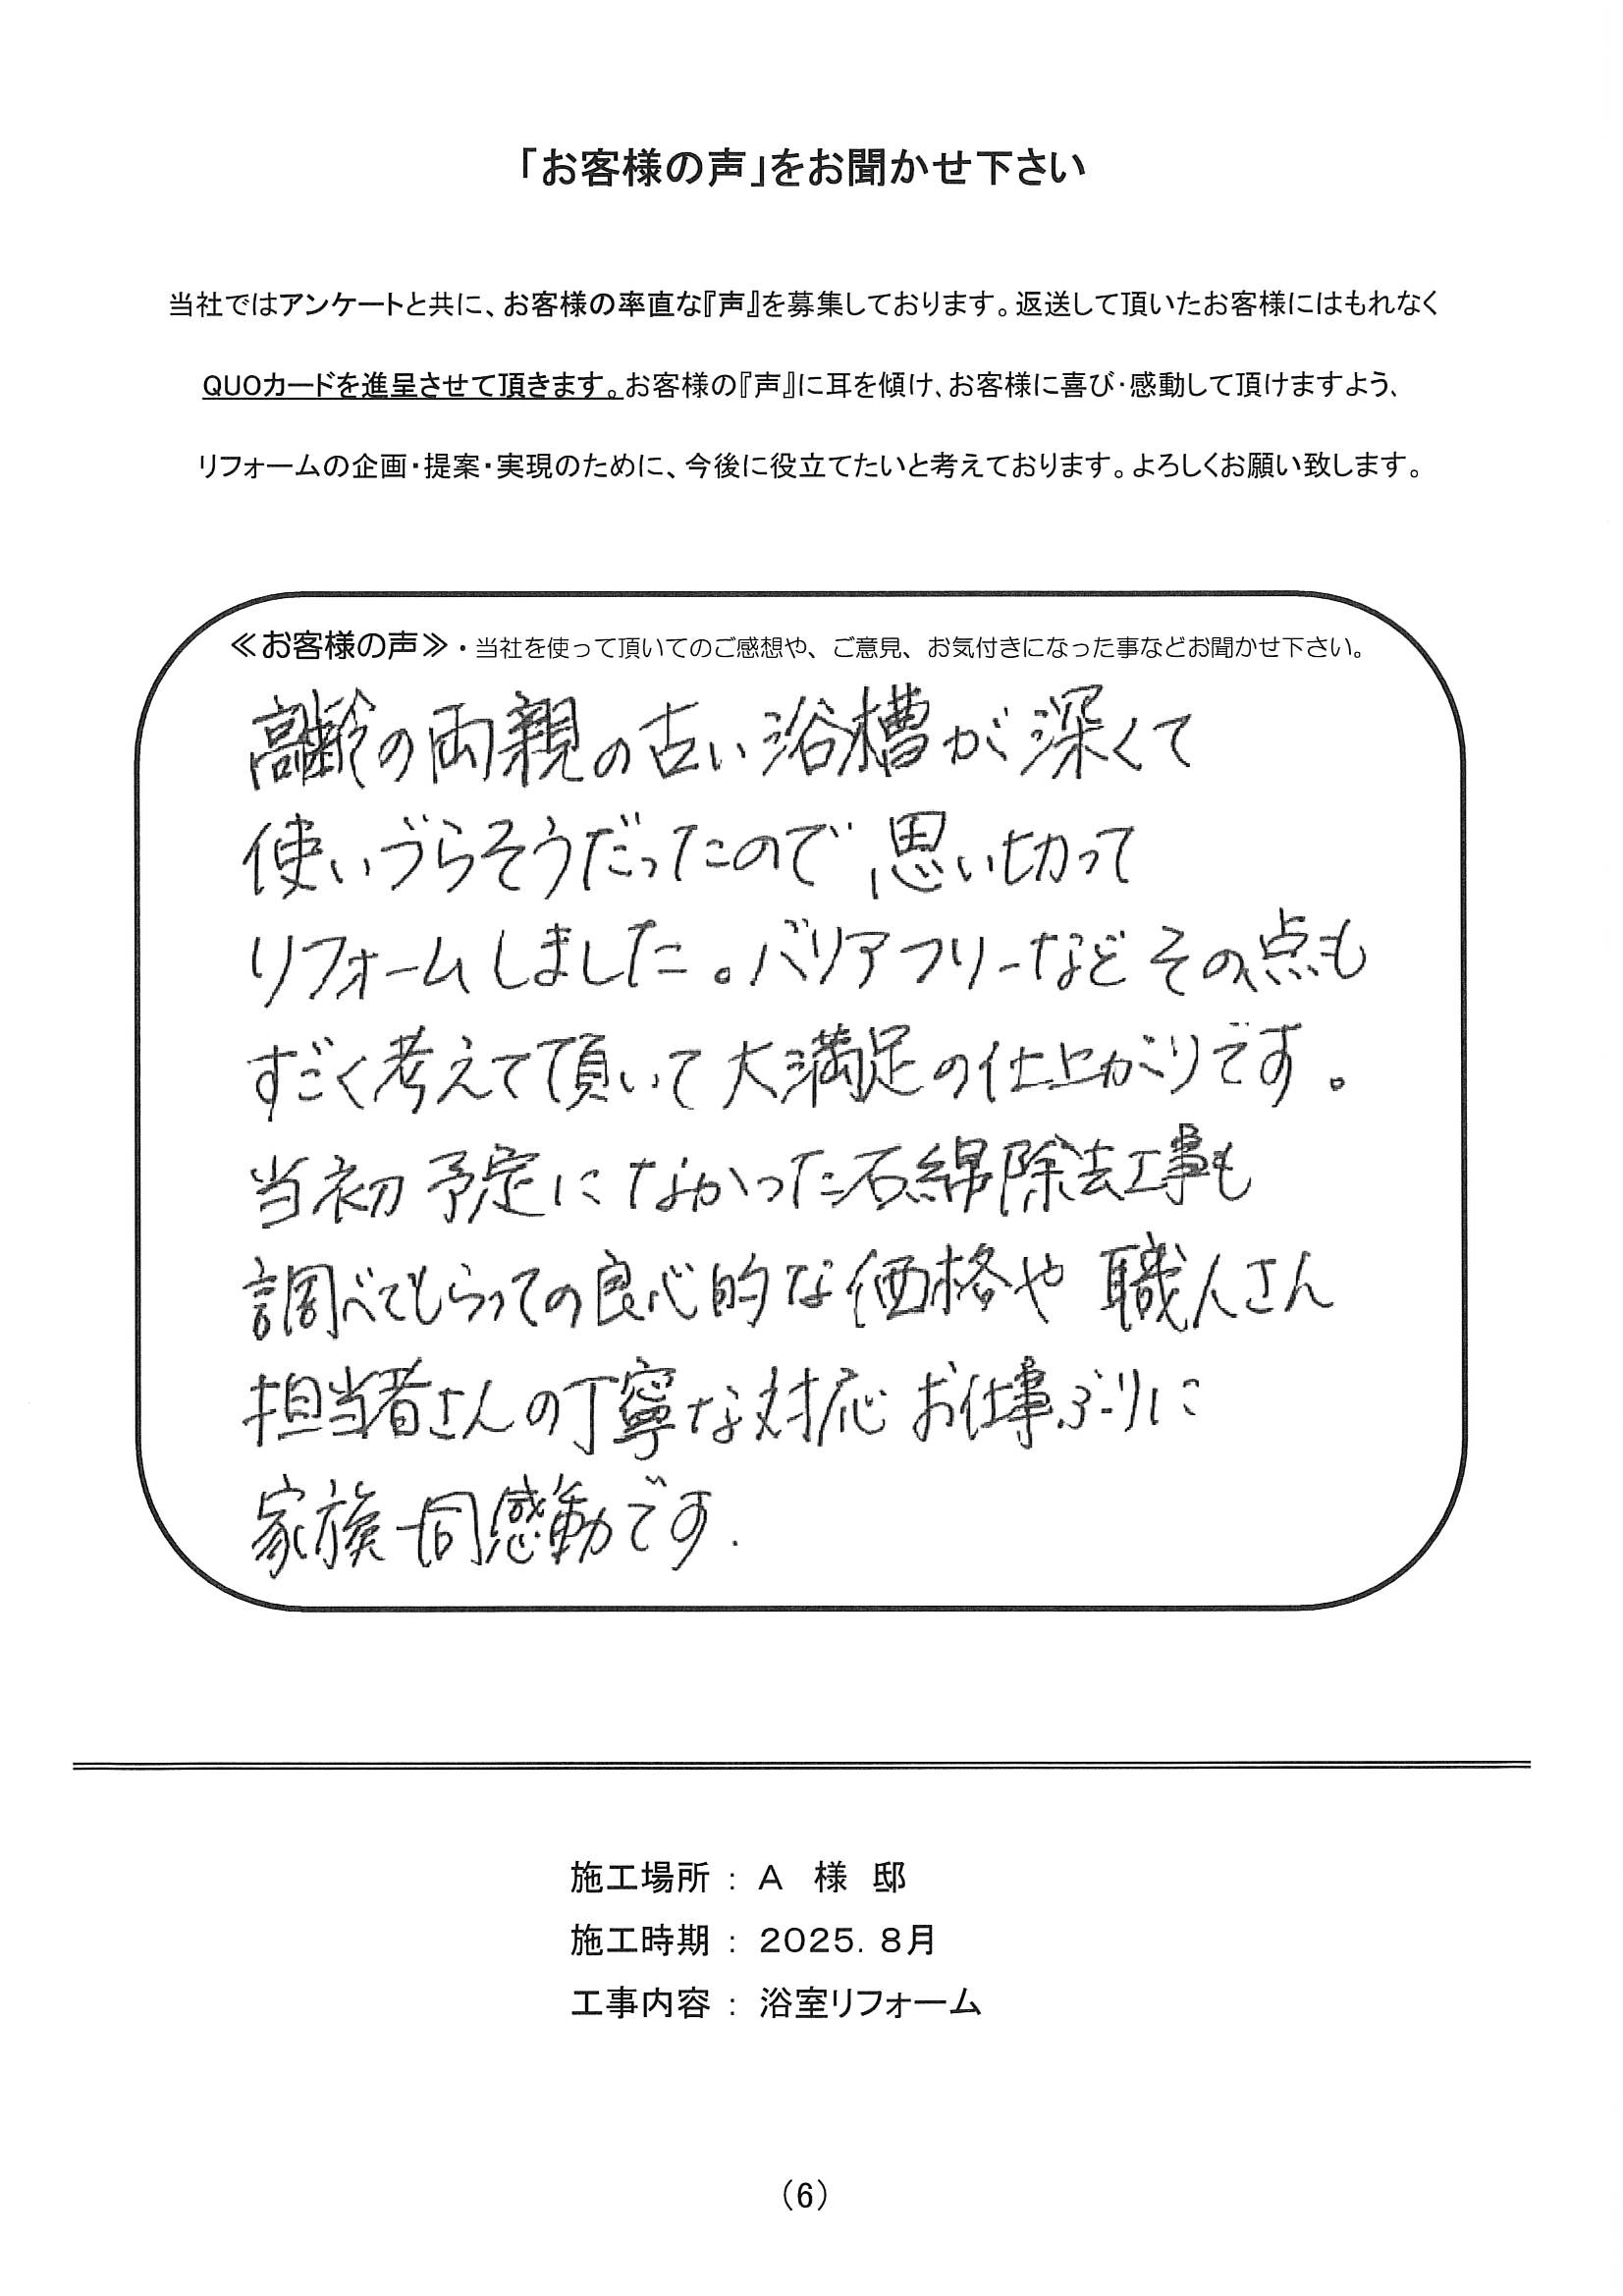 「お客様の声」をお聞かせ下さい
当社ではアンケートと共に、お客様の率直な『声』を募集しております。返送して頂いたお客様にはもれなく
QUOカードを進呈させて頂きます。お客様の『声』に耳を傾け、お客様に喜び・感動して頂けますよう、
リフォームの企画・提案・実現のために、今後に役立てたいと考えております。よろしくお願い致します。
≪お客様の声≫・当社を使って頂いてのご感想や、ご意見、お気付きになった事などお聞かせ下さい。
高齢の両親の古い浴槽が深くて
使いづらそうだったので、思い切って
リフォームしました。バリアフリーなどその点も
すごく考えて頂いて大満足の仕上がりです。
当初予定になかった石綿除去工事も
調べてもらっての良心的な価格や職人さん
担当者さんの丁寧な対応お仕事ぶりに
家族一同感動です.
施工場所 : A 様 邸
施工時期 : 2025. 8月
工事内容 : 浴室リフォーム
(6)